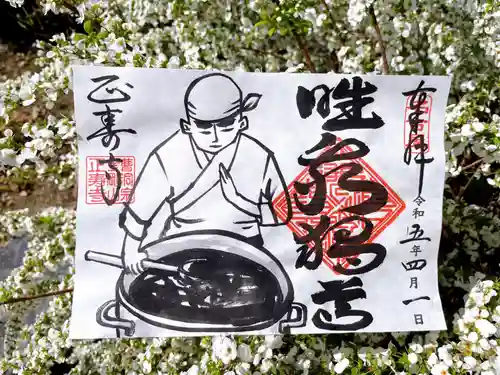 奉拝
令和五年四月一日
唯我独尊
正寿寺
曹洞宗
正寿寺